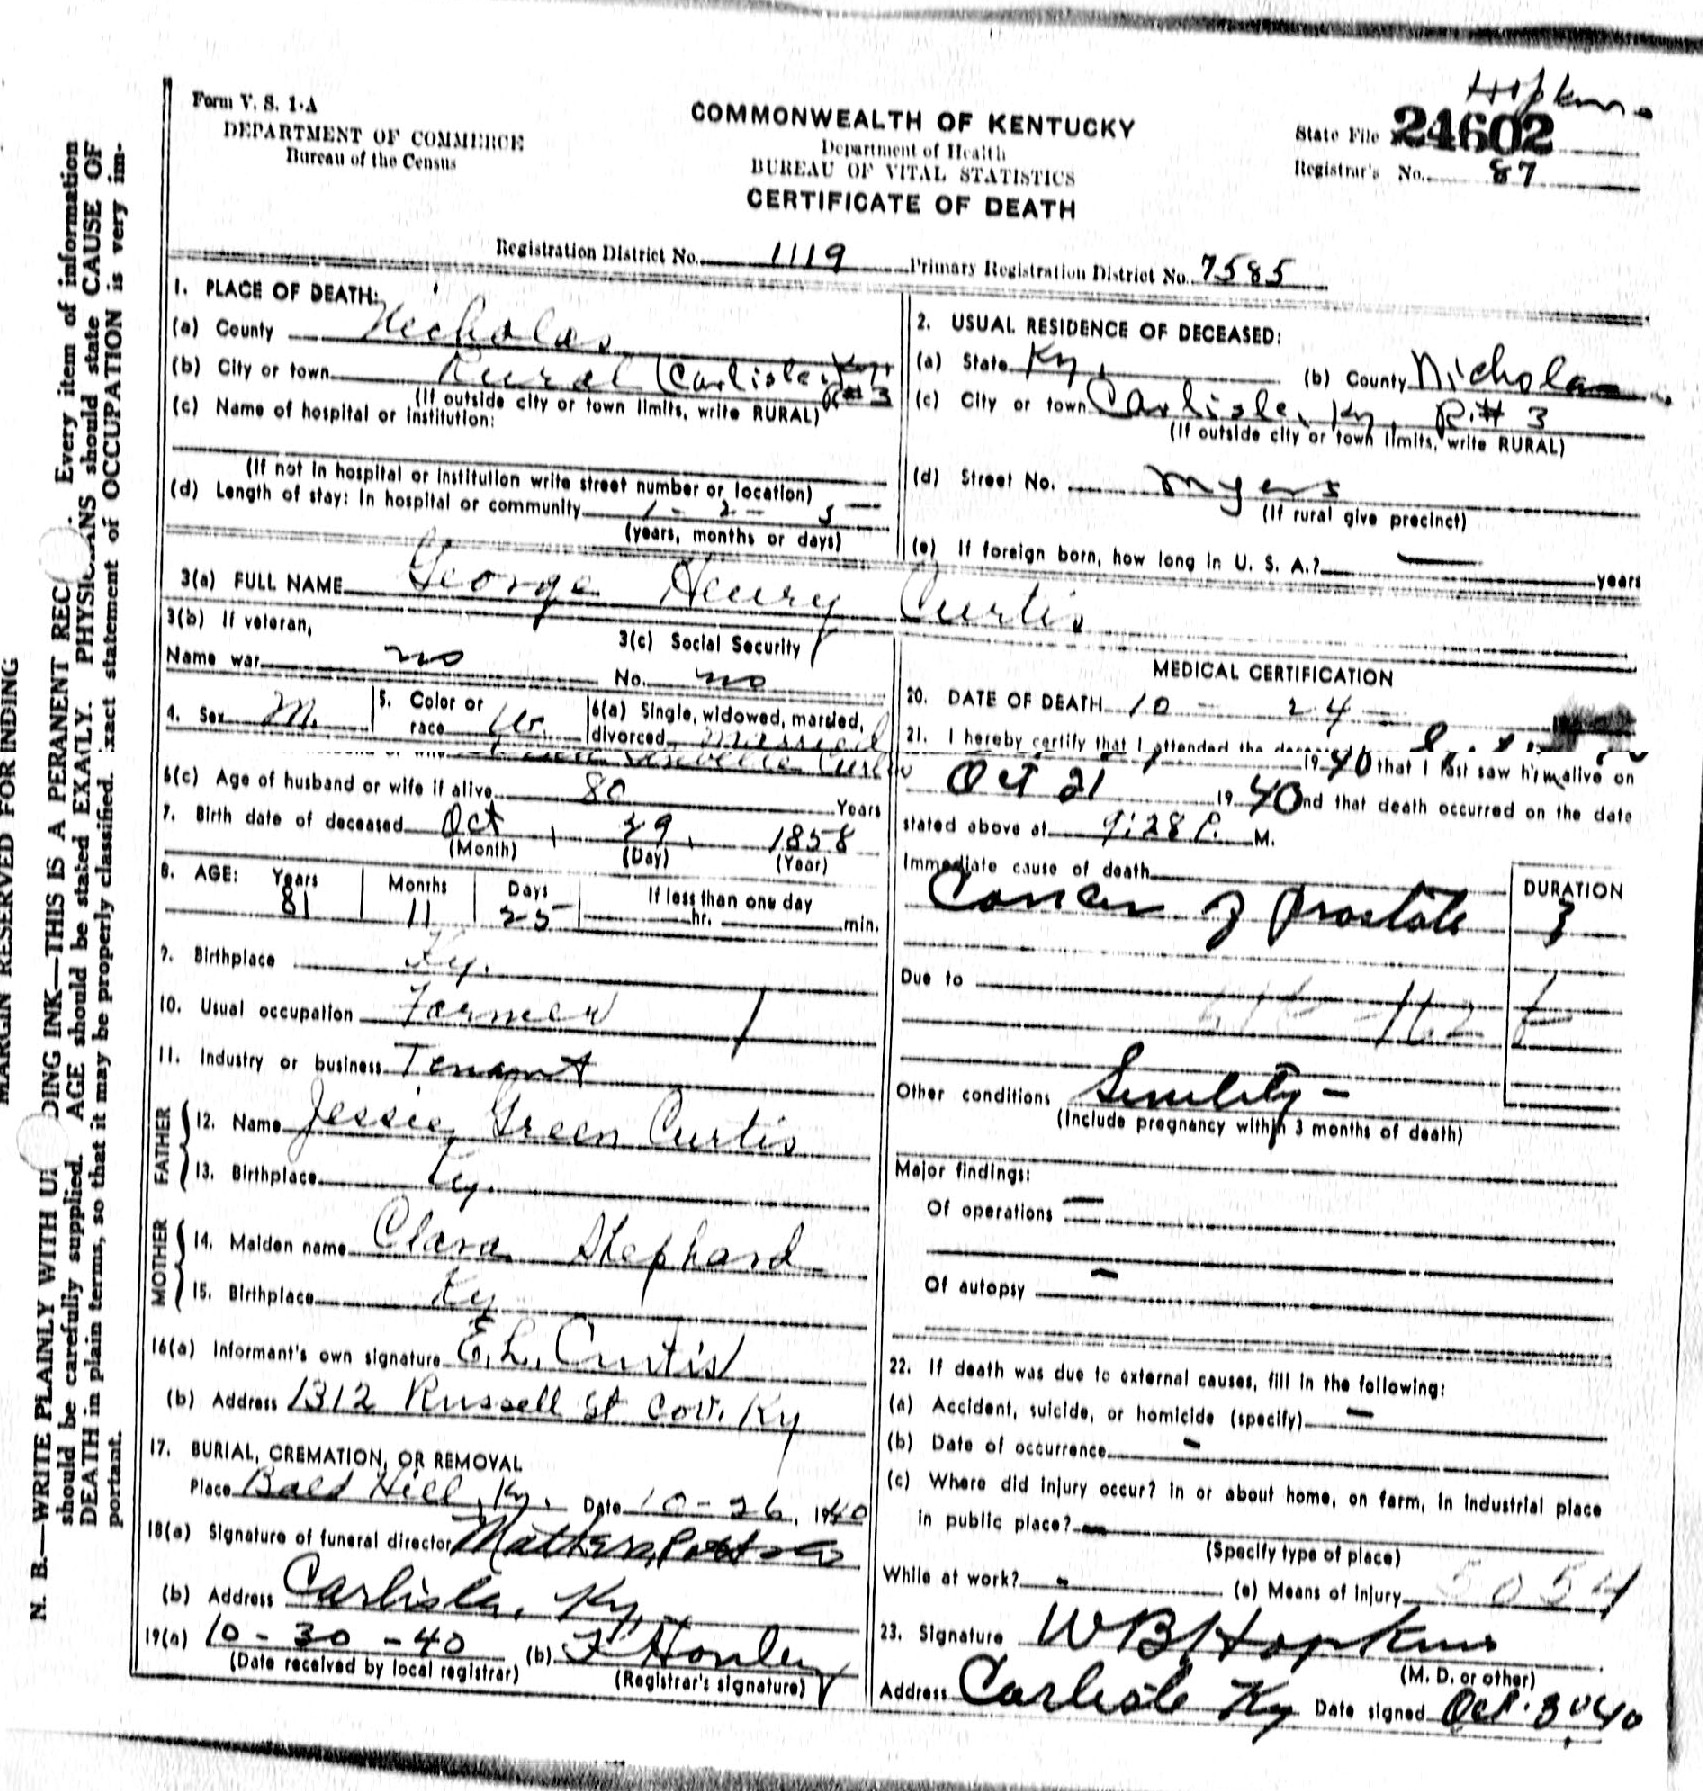 Hopkins
Form V. S. 1-A
DEPARTMENT OF COMMERCE
Bureau of the Census
COMMONWEALTH OF KENTUCKY
Department of Health
BUREAU OF VITAL STATISTICS
CERTIFICATE OF DEATH
State File 24602
Registrar's No. 87
Registration District No. 1119 Primary Registration District No. 7585
1. PLACE OF DEATH:
(a) County Nicholas
(b) City or town Rural (Carlisle, Ky. R#3
(If outside city or town limits, write RURAL)
(c) Name of hospital or institution:
(If not in hospital or institution write street number or location)
(d) Length of stay: In hospital or community 1 - 2 -
(years, months or days)
2. USUAL RESIDENCE OF DECEASED:
(a) State Ky. (b) County Nicholas
(c) City or town Carlisle, Ky. R.# 3
(If outside city or town limits, write RURAL)
(d) Street No. Myers
(If rural give precinct)
(e) If foreign born, how long in U. S. A.? — years
3(a) FULL NAME George Henry Curtis
3(b) If veteran,
Name war no
3(c) Social Security
No. no
4. Sex M.
5. Color or
race W.
6(a) Single, widowed, married,
divorced married
Curtis
6(c) Age of husband or wife if alive 80 Years
7. Birth date of deceased Oct 29, 1858
(Month) (Day) (Year)
8. AGE: Years Months Days If less than one day
81 11 25 hr. min.
9. Birthplace Ky.
10. Usual occupation Farmer
11. Industry or business Tenant
FATHER
12. Name Jessie Green Curtis
13. Birthplace Ky.
MOTHER
14. Maiden name Clara Shephard
15. Birthplace Ky
16(a) Informant's own signature E. L. Curtis
(b) Address 1312 Russell St Cov. Ky
17. BURIAL, CREMATION, OR REMOVAL
Place Bald Hill, Ky. Date 10-26, 1940
18(a) Signature of funeral director Mathers
(b) Address Carlisle, Ky.
19(a) 10-30-40 (b) F
(Date received by local registrar) (Registrar's signature)
MEDICAL CERTIFICATION
20. DATE OF DEATH 10 - 24 -
21. I hereby certify that I attended the
1940 that I last saw him alive on
Oct 21 1940 nd that death occurred on the date
stated above at 9:28 P. M.
Immediate cause of death
Cancer of prostate
DURATION
Due to
Other conditions Senility -
(Include pregnancy within 3 months of death)
Major findings:
Of operations —
Of autopsy -
22. If death was due to external causes, fill in the following:
(a) Accident, suicide, or homicide (specify) —
(b) Date of occurrence -
(c) Where did injury occur? in or about home, on farm, in industrial place
in public place? —
(Specify type of place)
While at work? - (e) Means of injury 5054
23. Signature W B Hopkins
(M. D. or other)
Address Carlisle Ky Date signed Oct. 30 40
MARGIN RESERVED FOR INDING
N. B.—WRITE PLAINLY WITH U DING INK—THIS IS A PERANENT REC . Every item of information
should be carefully supplied. AGE should be stated EXACLY. PHYSIC ANS should state CAUSE OF
DEATH in plain terms, so that it may be properly classified. xact statement of OCCUPATION is very im-
portant.